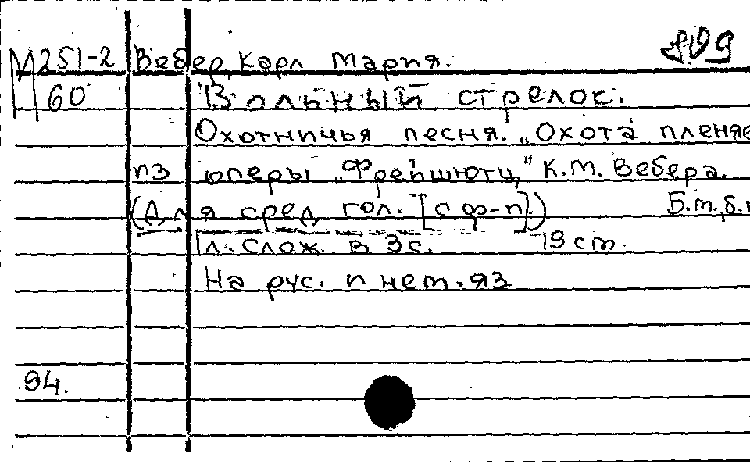 М251-2 Вебер, Карл Мария. 809
60 Вольный стрелок.
Охотничья песня. „Охота пленяе
из оперы „Фрейшютц" К.М. Вебера.
(Для сред. гол. [с ф-п].) Б.м.,б.г
1 л. слож. в 3с. 19 cm.
На рус. и нем. яз
94.